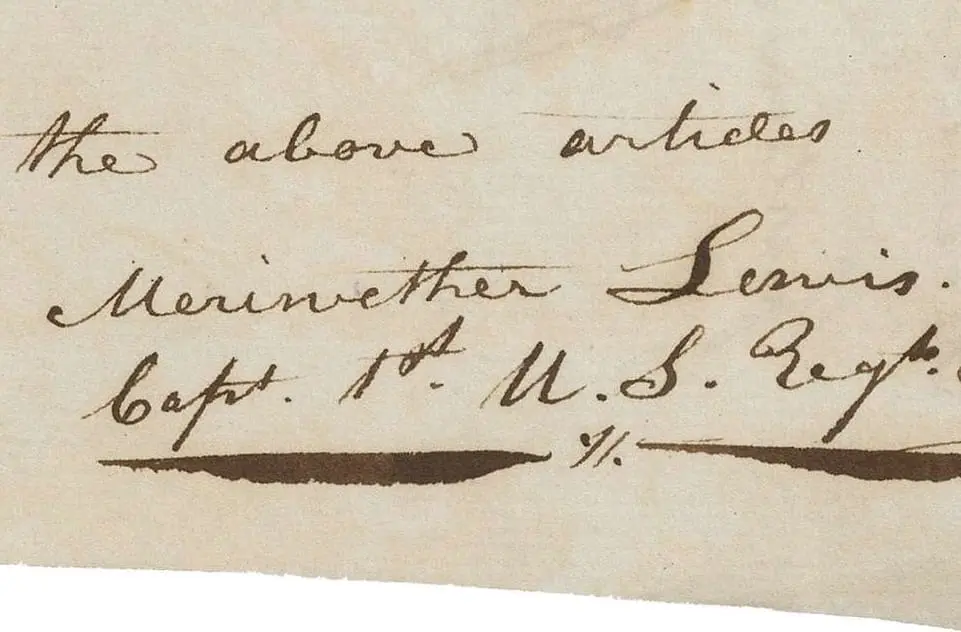 the above articles
Meriwether Lewis.
Capt. 1st. U. S. Regt.